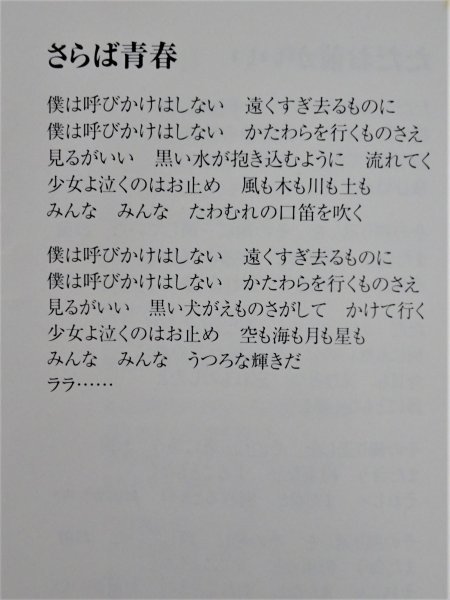 さらば青春
僕は呼びかけはしない　遠くすぎ去るものに
僕は呼びかけはしない　かたわらを行くものさえ
見るがいい　黒い水が抱き込むように　流れてく
少女よ泣くのはお止め　風も木も川も土も
みんな　みんな　たわむれの口笛を吹く
僕は呼びかけはしない　遠くすぎ去るものに
僕は呼びかけはしない　かたわらを行くものさえ
見るがいい　黒い犬がえものさがして　かけて行く
少女よ泣くのはお止め　空も海も月も星も
みんな　みんな　うつろな輝きだ
ララ……